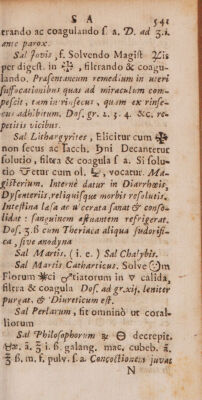 S A 541
erando ac coagulando f. a. D. ad ʒ.i.
ante parox.
Sal Jovis, f. Solvendo Magist ♃is
per digest. in , filtrando & coagu-
lando. Præsentaneum remedium in uteri
suffocationibus quas ad miraculum com-
pescit, tam intrinsecus, quam ex rinse-
cus adhibitum. Dos. gr. 2. 3. 4. &c. re-
petitis vicibus.
Sal Lithargyrites, Elicitur cum
non secus ac Sacch. ♄ni Decantetur
solutio, filtra & coagula f. a. Si solu-
tio etur cum ol. vocatur. Ma-
gisterium. Internè datur in Diarrhæis,
Dysenteriis, reliquisque morbis resolutis.
Intestina læsa ac ulcerata sanat & conso-
lidat : sanguinem æstuantem refrigerat.
Dos. ʒ.ß cum Theriaca aliqua sudorifi-
ca, sive anodyna
Sal Martis. ( i. e. ) Sal Chalybis.
Sal Martis Catharticus. Solve
Florum ci tiatorum in ▽ calida,
filtra & coagula Dos. ad gr.xij. leniter
purgat. & Diureticum est.
Sal Perlarum, fit omninò ut coral-
liorum
Sal Philosophorum ℞ decrepit.
ā. ʒ i. ß galang. mac. cubeb. ā.
ʒ ß. m. f. pulv. f a. Concoctionem juvat
N